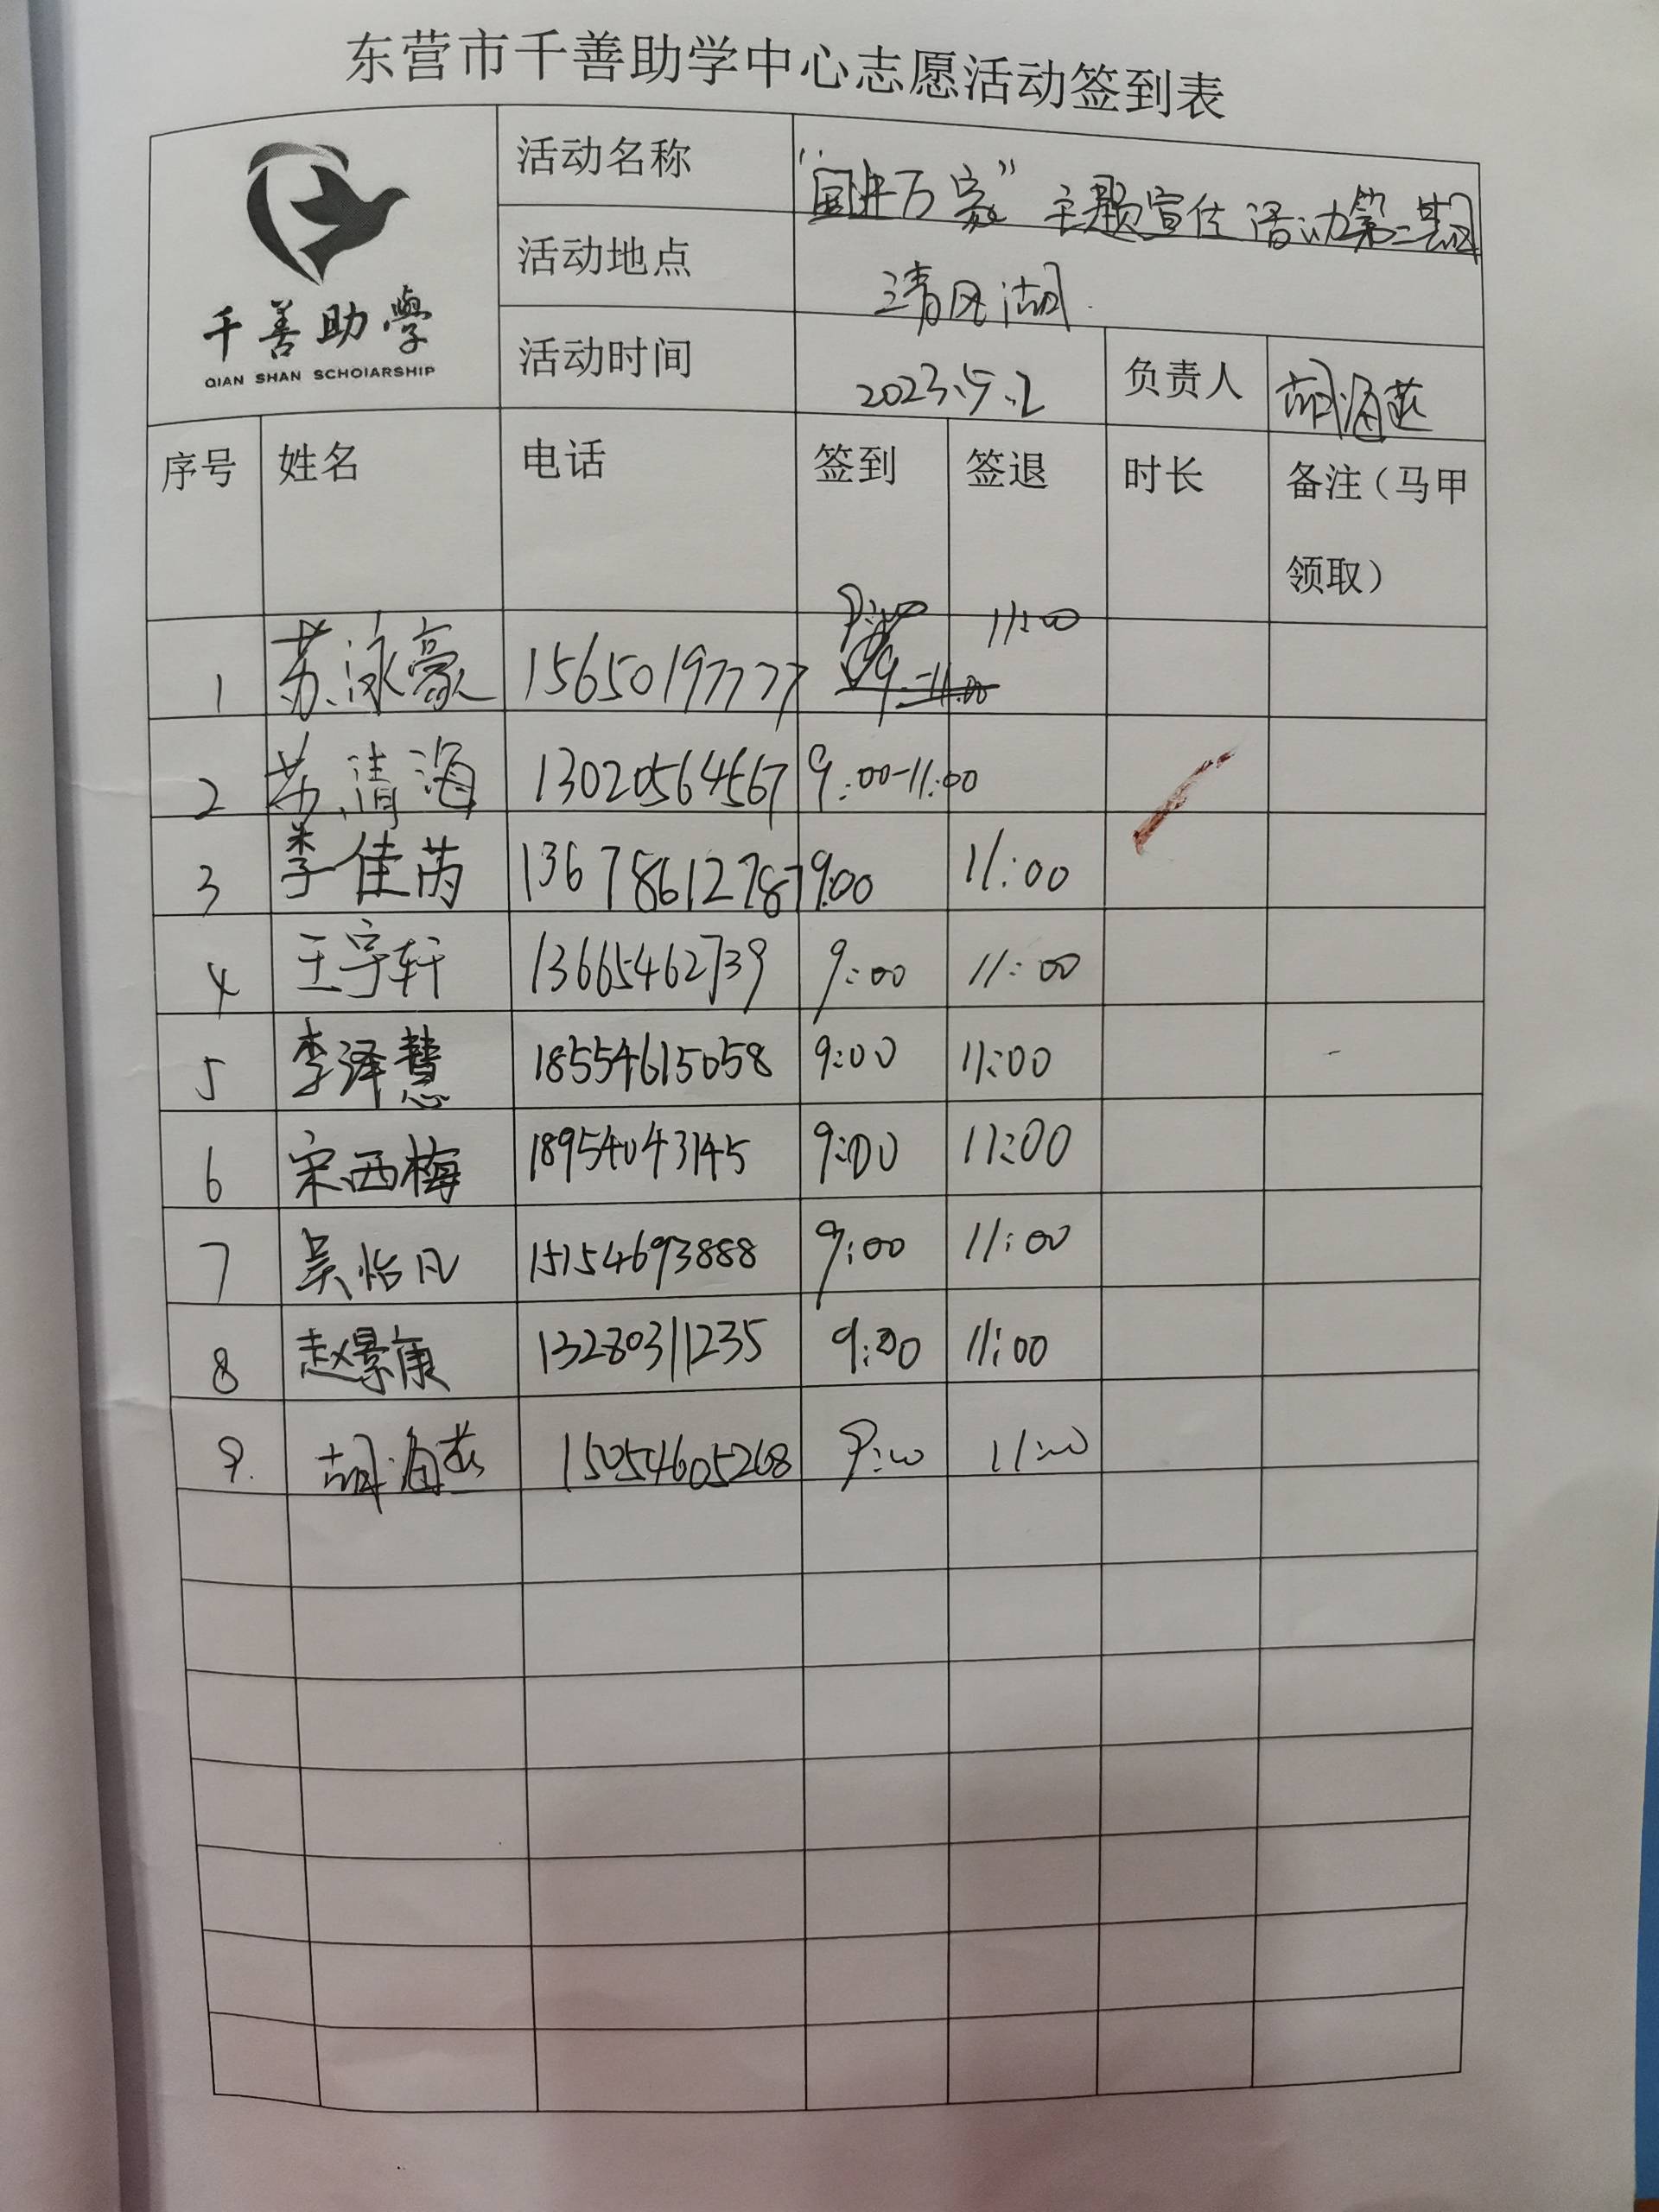 东营市千善助学中心志愿活动签到表
千善助學
QIAN SHAN SCHOIARSHIP
活动名称 "国进万家"主题宣传活动第二期
活动地点 清风湖
活动时间 2023.5.2 负责人 胡海燕
序号 姓名 电话 签到 签退 时长 备注（马甲
领取）
1 苏泳豪 15650197777 9:00 11:00
2 苏清海 13020564567 9:00-11:00
3 李佳芮 13678612787 9:00 11:00
4 王宇轩 13665462739 9:00 11:00
5 李泽慧 18554615058 9:00 11:00
6 宋西梅 18954043145 9:00 11:00
7 吴怡凡 15154693888 9:00 11:00
8 赵景康 13280311235 9:00 11:00
9. 胡海燕 15054605268 9:00 11:00